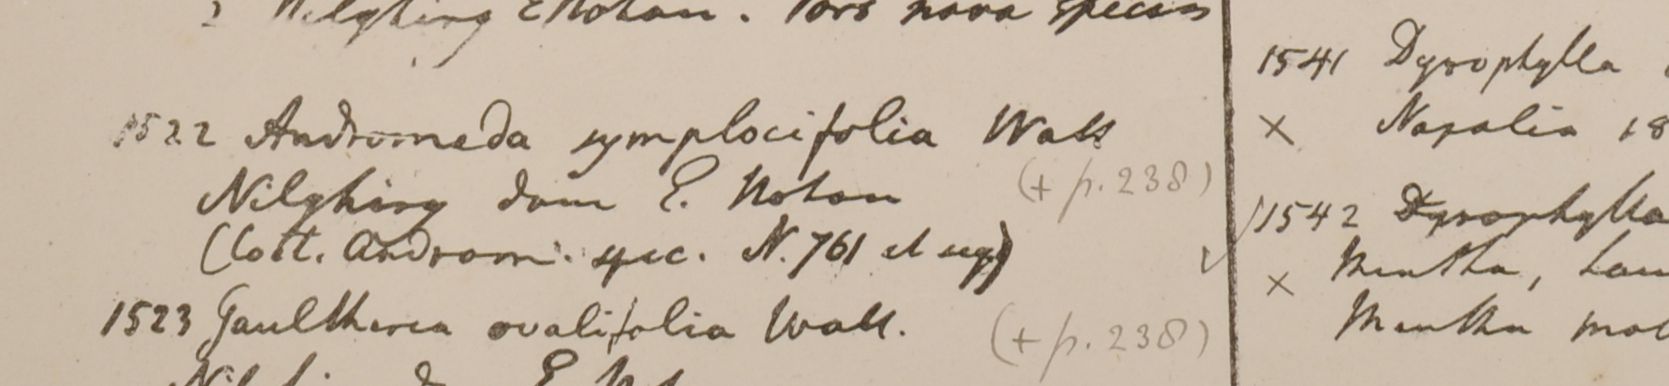 2 Nilghiry E Noton. Fors nova species
1522 Andromeda symplocifolia Wall
Nilghiry dom E. Noton (+ p. 238)
(Coll. Androm. spec. N. 761 et seq)
1523 Gaultheria ovalifolia Wall. (+ p. 238)
1541 Dysophylla
× Napalia 18
1542 Dysophylla
× Mentha,
Mentha